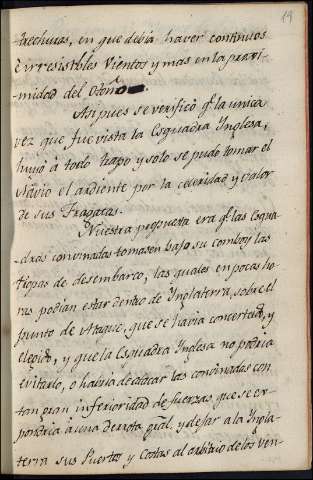 19
trechuras, en que debia haver continuos
è irresistibles Vientos y mas en la proxi-
-midad del Otoño
Asi pues se verificò qe. la unica
vez que fue vista la Esquadra Ynglesa,
huyó à todo trapo y solo se pudo tomar el
Navio el ardiente por la celeridad y valor
de sus Fragatas.
Nuestra propuesta era qe. las Esqua
-dras convinadas tomasen bajo su comboy las
tropas de desembarco, las quales en pocas ho
ras podian estar dentro de Ynglaterra, sobre el
punto de Ataque, que se havia concertado, y
elegido, y que la Esquadra Ynglesa no podria
evitarlo, o habria de atacar las convinadas con
tan gran inferioridad de fuerzas que se ex-
pondria à una derrota gral. y dejar a la Yngla-
terra sus Puertos y Costas al arbitrio de los Ven-